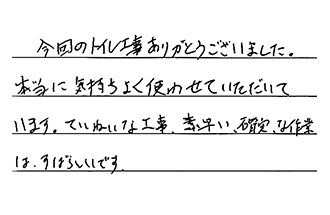 今回のトイレ工事ありがとうございました。
本当に気持ちよく使わせていただいて
います。ていねいな工事、素早い、確実な作業
は、すばらしいです。